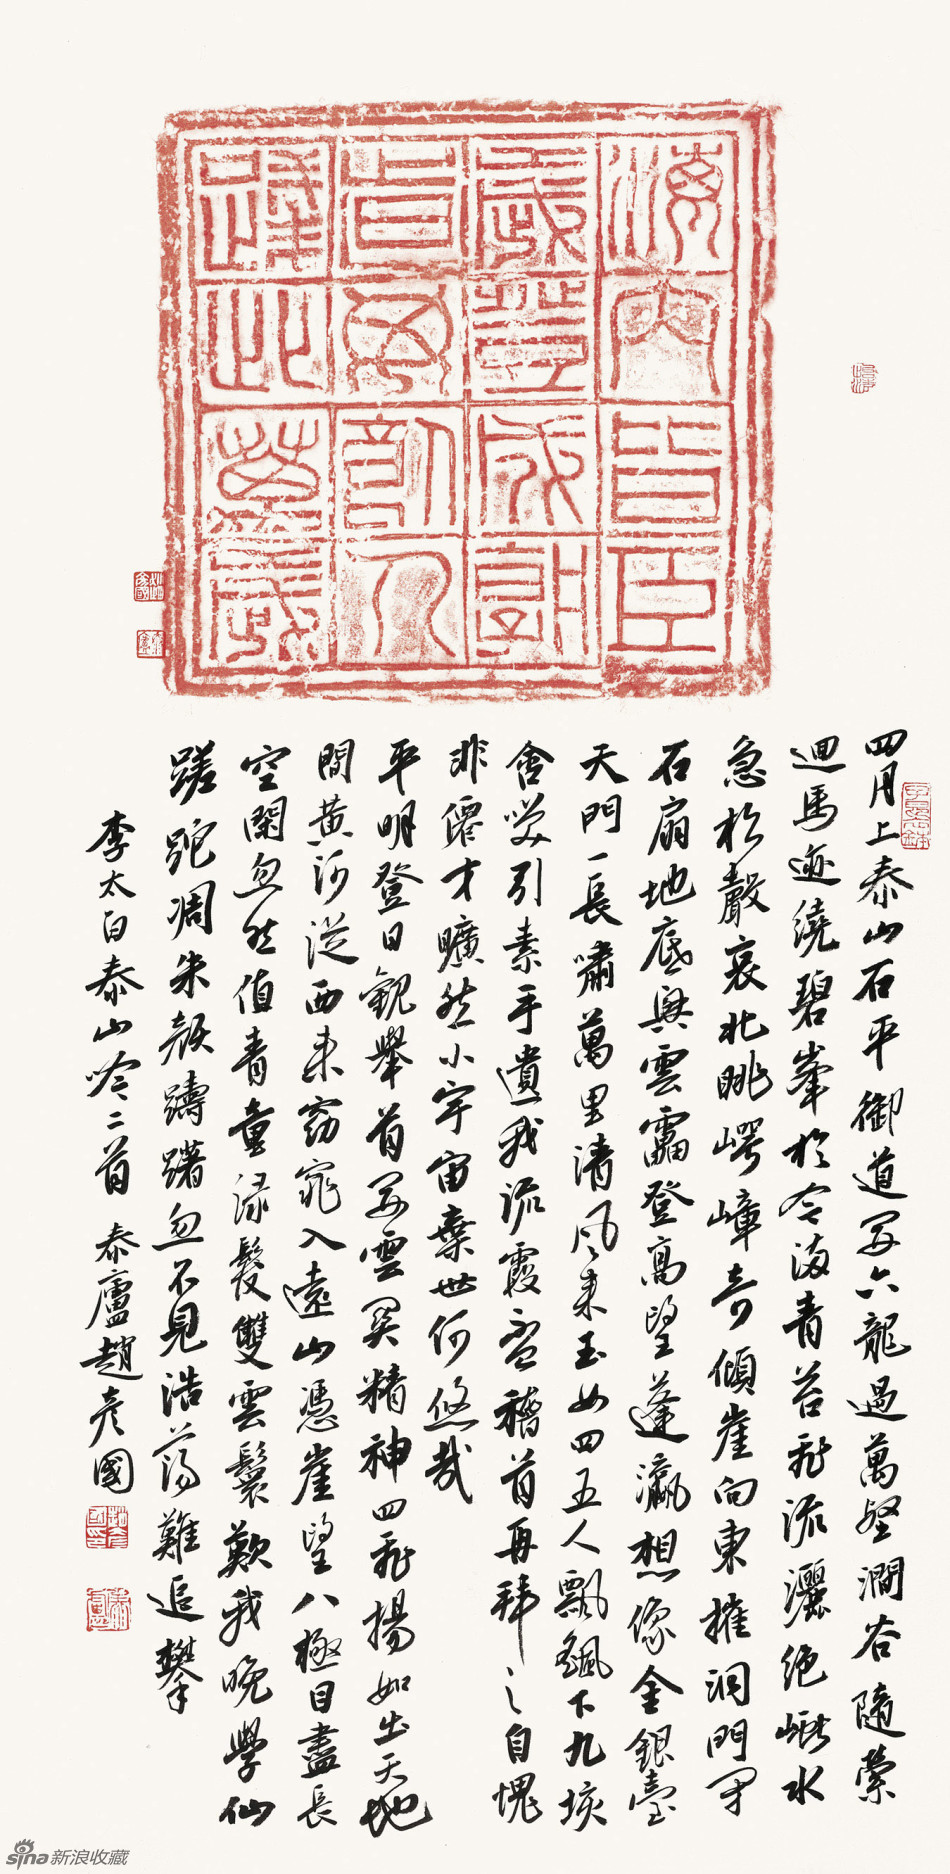 海内皆臣
歲登成熟
道毋飢人
踐此萬歲
四月上泰山石平御道開六龍過萬壑澗谷隨縈
迴馬迹繞碧峯於今滿青苔飛流灑絶巘水
急松聲哀北眺崿嶂奇傾崖向東摧洞門閉
石扇地底興雲雷登高望蓬瀛想像金銀臺
天門一長嘯萬里清風來玉女四五人飄颻下九垓
含笑引素手遺我流霞盃稽首再拜之自愧
非僊才曠然小宇宙棄世何悠哉
平明登日觀舉首開雲關精神四飛揚如出天地
間黃河從西來窈窕入遠山憑崖望八極目盡長
空閑忽然值青童緑髮雙雲鬟歎我晚學仙
蹉跎凋朱顏躊躇忽不見浩蕩難追攀
李太白泰山吟二首 泰廬趙彥國
sina新浪收藏